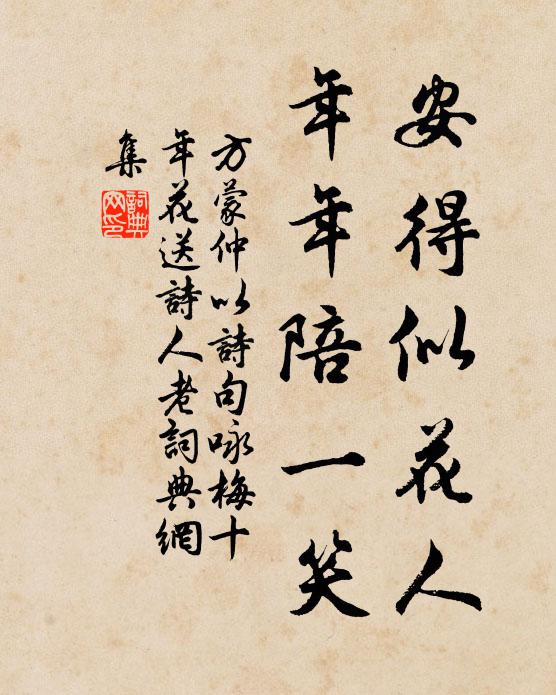 安得似花人
年年陪一笑
方蒙仲以詩句咏梅十
年花送詩人老詞典網
集
詞典網印